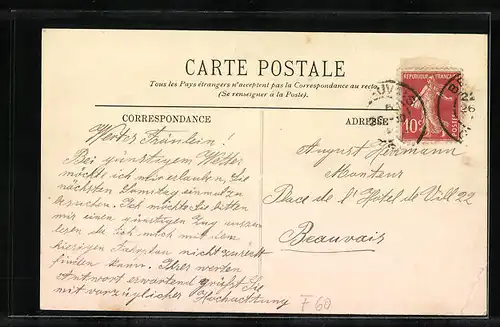 CARTE POSTALE
Tous les Pays étrangers n'acceptent pas la Correspondance au recto
(Se renseigner à la Poste).
CORRESPONDANCE
Werter Fräulein!
Bei günstigem Wetter
möchte ich mir erlauben, Sie
nächsten Samstag einmal zu
besuchen. Ich möchte Sie bitten
mir einen günstigen Zug
lesen da ich mich mit dem
hiesigen Fahrplan nicht zurecht
finden kann. Ihrer werten
Antwort erwartend grüßt Sie
mit vorzüglicher Hochachtung
ADRESSE
August Hermann
Monteur
Place de l'Hôtel de Vill 22
Beauvais
REPUBLIQUE FRANÇAISE
10c
POSTES
F60